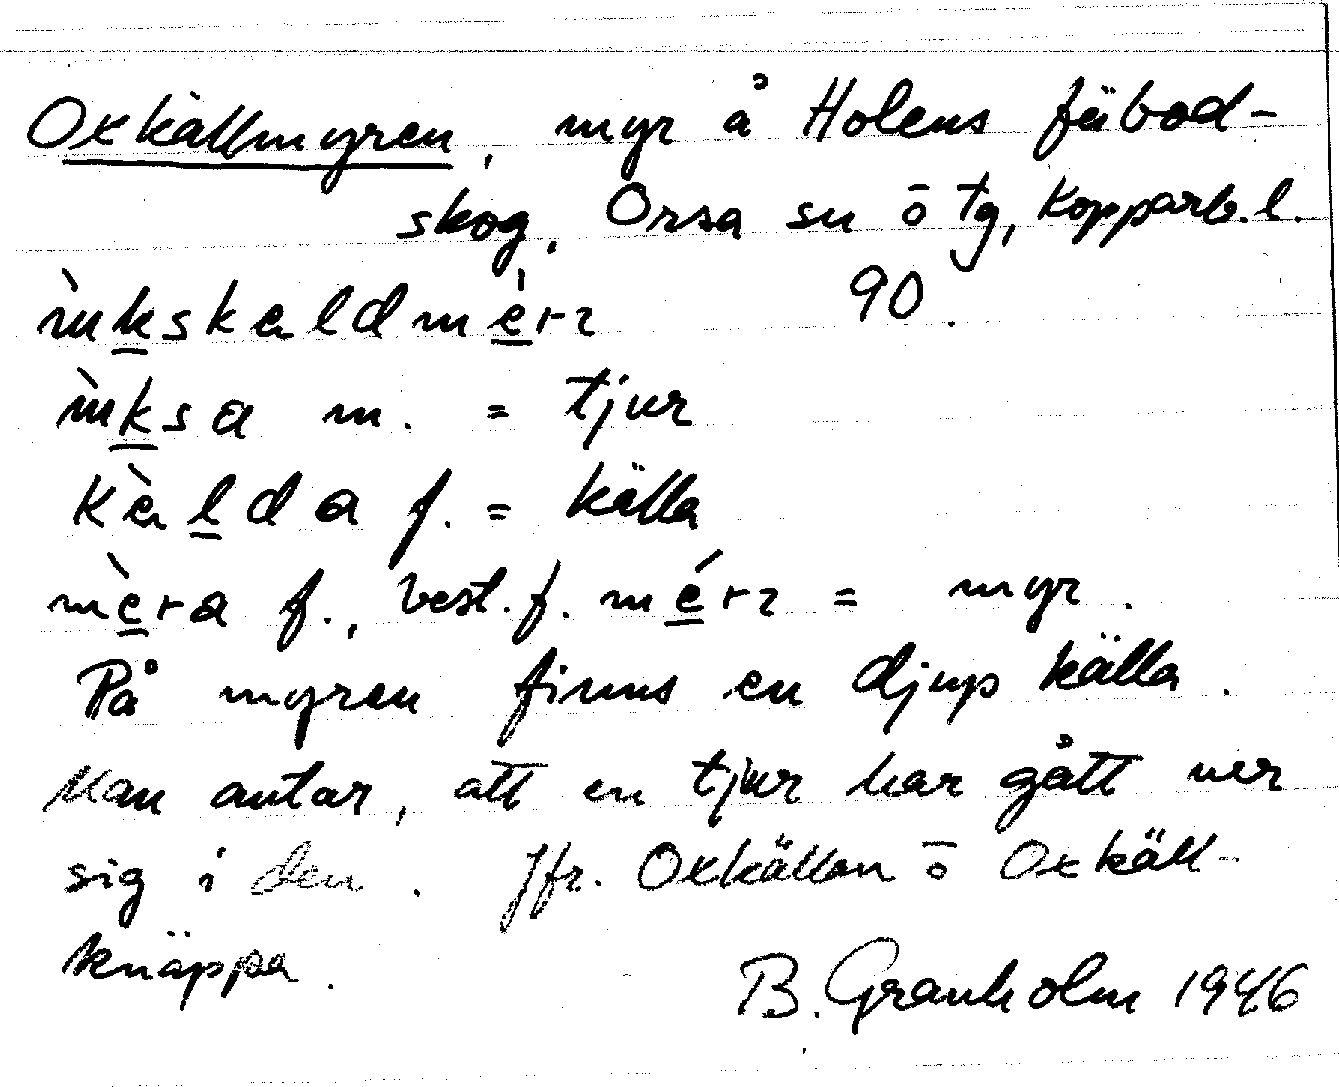 Oxkällmyren, myr å Holens fäbod-
skog, Orsa sn ō tg, Kopparb.l.
90.
m. = tjur
f. = källa
f., best. f. = myr.
På myren finns en djup källa.
Man antar, att en tjur har gått ner
sig i den. Jfr. Oxkällan ō Oxkäll-
knäppa.
B. Granholm 1946